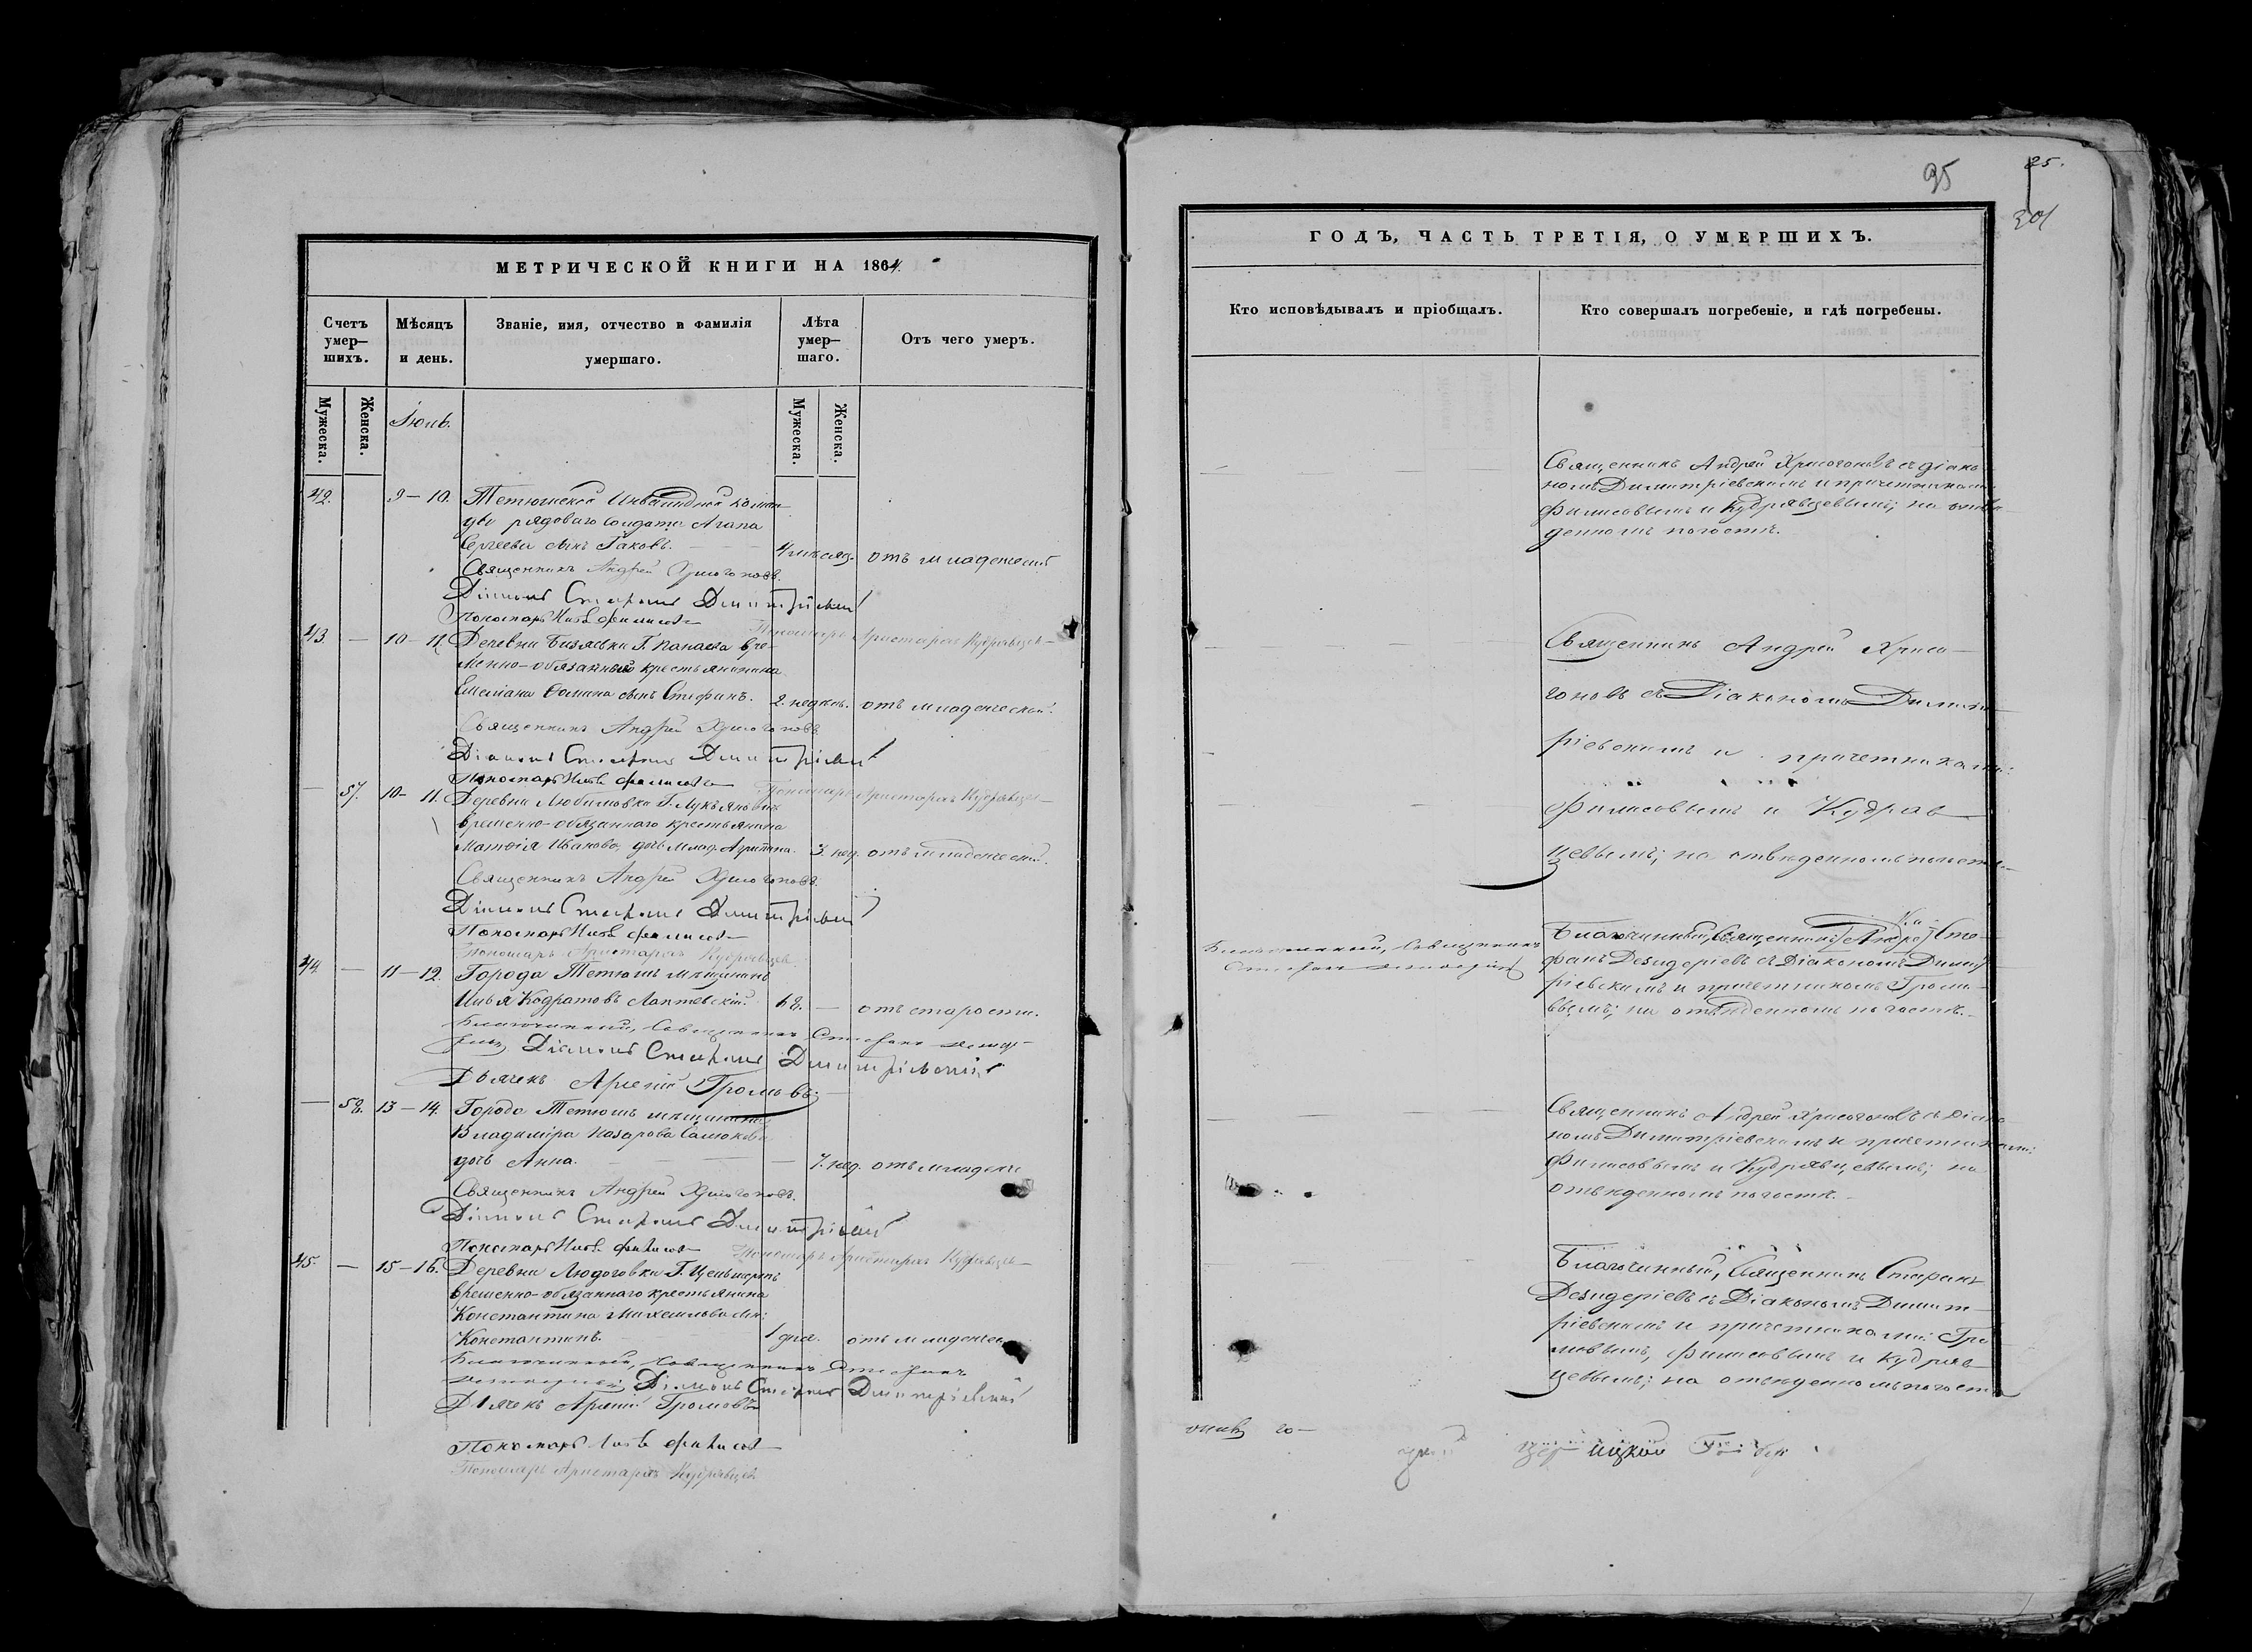 МЕТРИЧЕСКОЙ КНИГИ НА 1864.
Счетъ умер-шихъ.
Мѣсяцъ и день.
Званіе, имя, отчество и фамилія умершаго.
Лѣта умер-шаго.
Отъ чего умеръ.
Мужеска.
Женска.
Мужеска.
Женска.
Іюнь.
42. 9–10. Тетюшской Инвалидной коман-
ды рядоваго солдата Агапа
Сергеева сынъ Іаковъ. 4 месяц. отъ младенческ
Священникъ Андрей Хрисогоновъ.
Діаконъ Стефанъ Димитріевскій
Пономарь Филисовъ
Пономарь Аристархъ Кудрявцевъ
43. – 10–11. Деревни Бизяевки Г. Панаева вре-
менно-обязаннаго крестьянина
Емелиана Фомина сынъ Стефанъ. 2. недель. отъ младенческой.
Священникъ Андрей Хрисогоновъ.
Діаконъ Стефанъ Димитріевскій
Пономарь Филисовъ
Пономарь Аристархъ Кудрявцевъ
– 51. 10–11. Деревни Любимовки Г. Лукьяновича
временно-обязаннаго крестьянина
Матѳія Иванова, дочь млад. 3. нед. отъ младенческой.
Священникъ Андрей Хрисогоновъ.
Діаконъ Стефанъ Димитріевскій
Пономарь Филисовъ
Пономарь Аристархъ Кудрявцевъ
44 – 11–12. Города Тетюшъ мѣщанинъ
Илья Кодратовъ Лаптевскій. 62. – отъ старости.
Благочинный, Священникъ Стефанъ Дезиде-
ріевъ Діаконъ Стефанъ Димитріевскій
Дьячекъ Арсеній Громовъ.
– 52. 13–14. Города Тетюшъ мѣщанина
Владиміра Назарова
дочь Анна. – 7. нед. отъ младенче
Священникъ Андрей Хрисогоновъ.
Діаконъ Стефанъ Димитріевскій
Пономарь Филисовъ
Пономарь Аристархъ Кудрявцевъ
45. – 15–16. Деревни Людоговки Г.
временно-обязаннаго крестьянина
Константина
Константинъ. 1 дня. отъ младенчес
Благочинный, Священникъ Стефанъ
Дезидеріевъ Діаконъ Стефанъ Димитріевскій
Дьячекъ Арсеній Громовъ
Пономарь Филисовъ
Пономарь Аристархъ Кудрявцевъ
95 25.
301
ГОДЪ, ЧАСТЬ ТРЕТІЯ, О УМЕРШИХЪ.
Кто исповѣдывалъ и пріобщалъ.
Кто совершалъ погребеніе, и гдѣ погребены.
Священникъ Андрей Хрисогоновъ съ діако
номъ Димитріевскимъ и причетниками
Филисовымъ и Кудрявцевымъ; на отве
денномъ погостѣ.
Священникъ Андрей Хрисо-
гоновъ съ Діакономъ Димит
ріевскимъ и причетниками:
Филисовымъ и Кудряв
цевымъ; на отведенномъ погостѣ.
Благочинный, Священникъ
Стефанъ Дезидеріевъ
Благочинный, Священникъ Андрей Сте-
фанъ Дезидеріевъ съ Діакономъ Димит
ріевскимъ и причетникомъ Громо-
вымъ; на отведенномъ погостѣ.
Священникъ Андрей Хрисогоновъ съ Діако
номъ Димитріевскимъ и причетниками:
Филисовымъ и Кудрявцевымъ; на
отведенномъ погостѣ.
Благочинный, Священникъ Стефанъ
Дезидеріевъ съ Діакономъ Димит-
ріевскимъ и причетниками Гро
мовымъ, Филисовымъ и Кудряв
цевымъ; на отведенномъ погостѣ